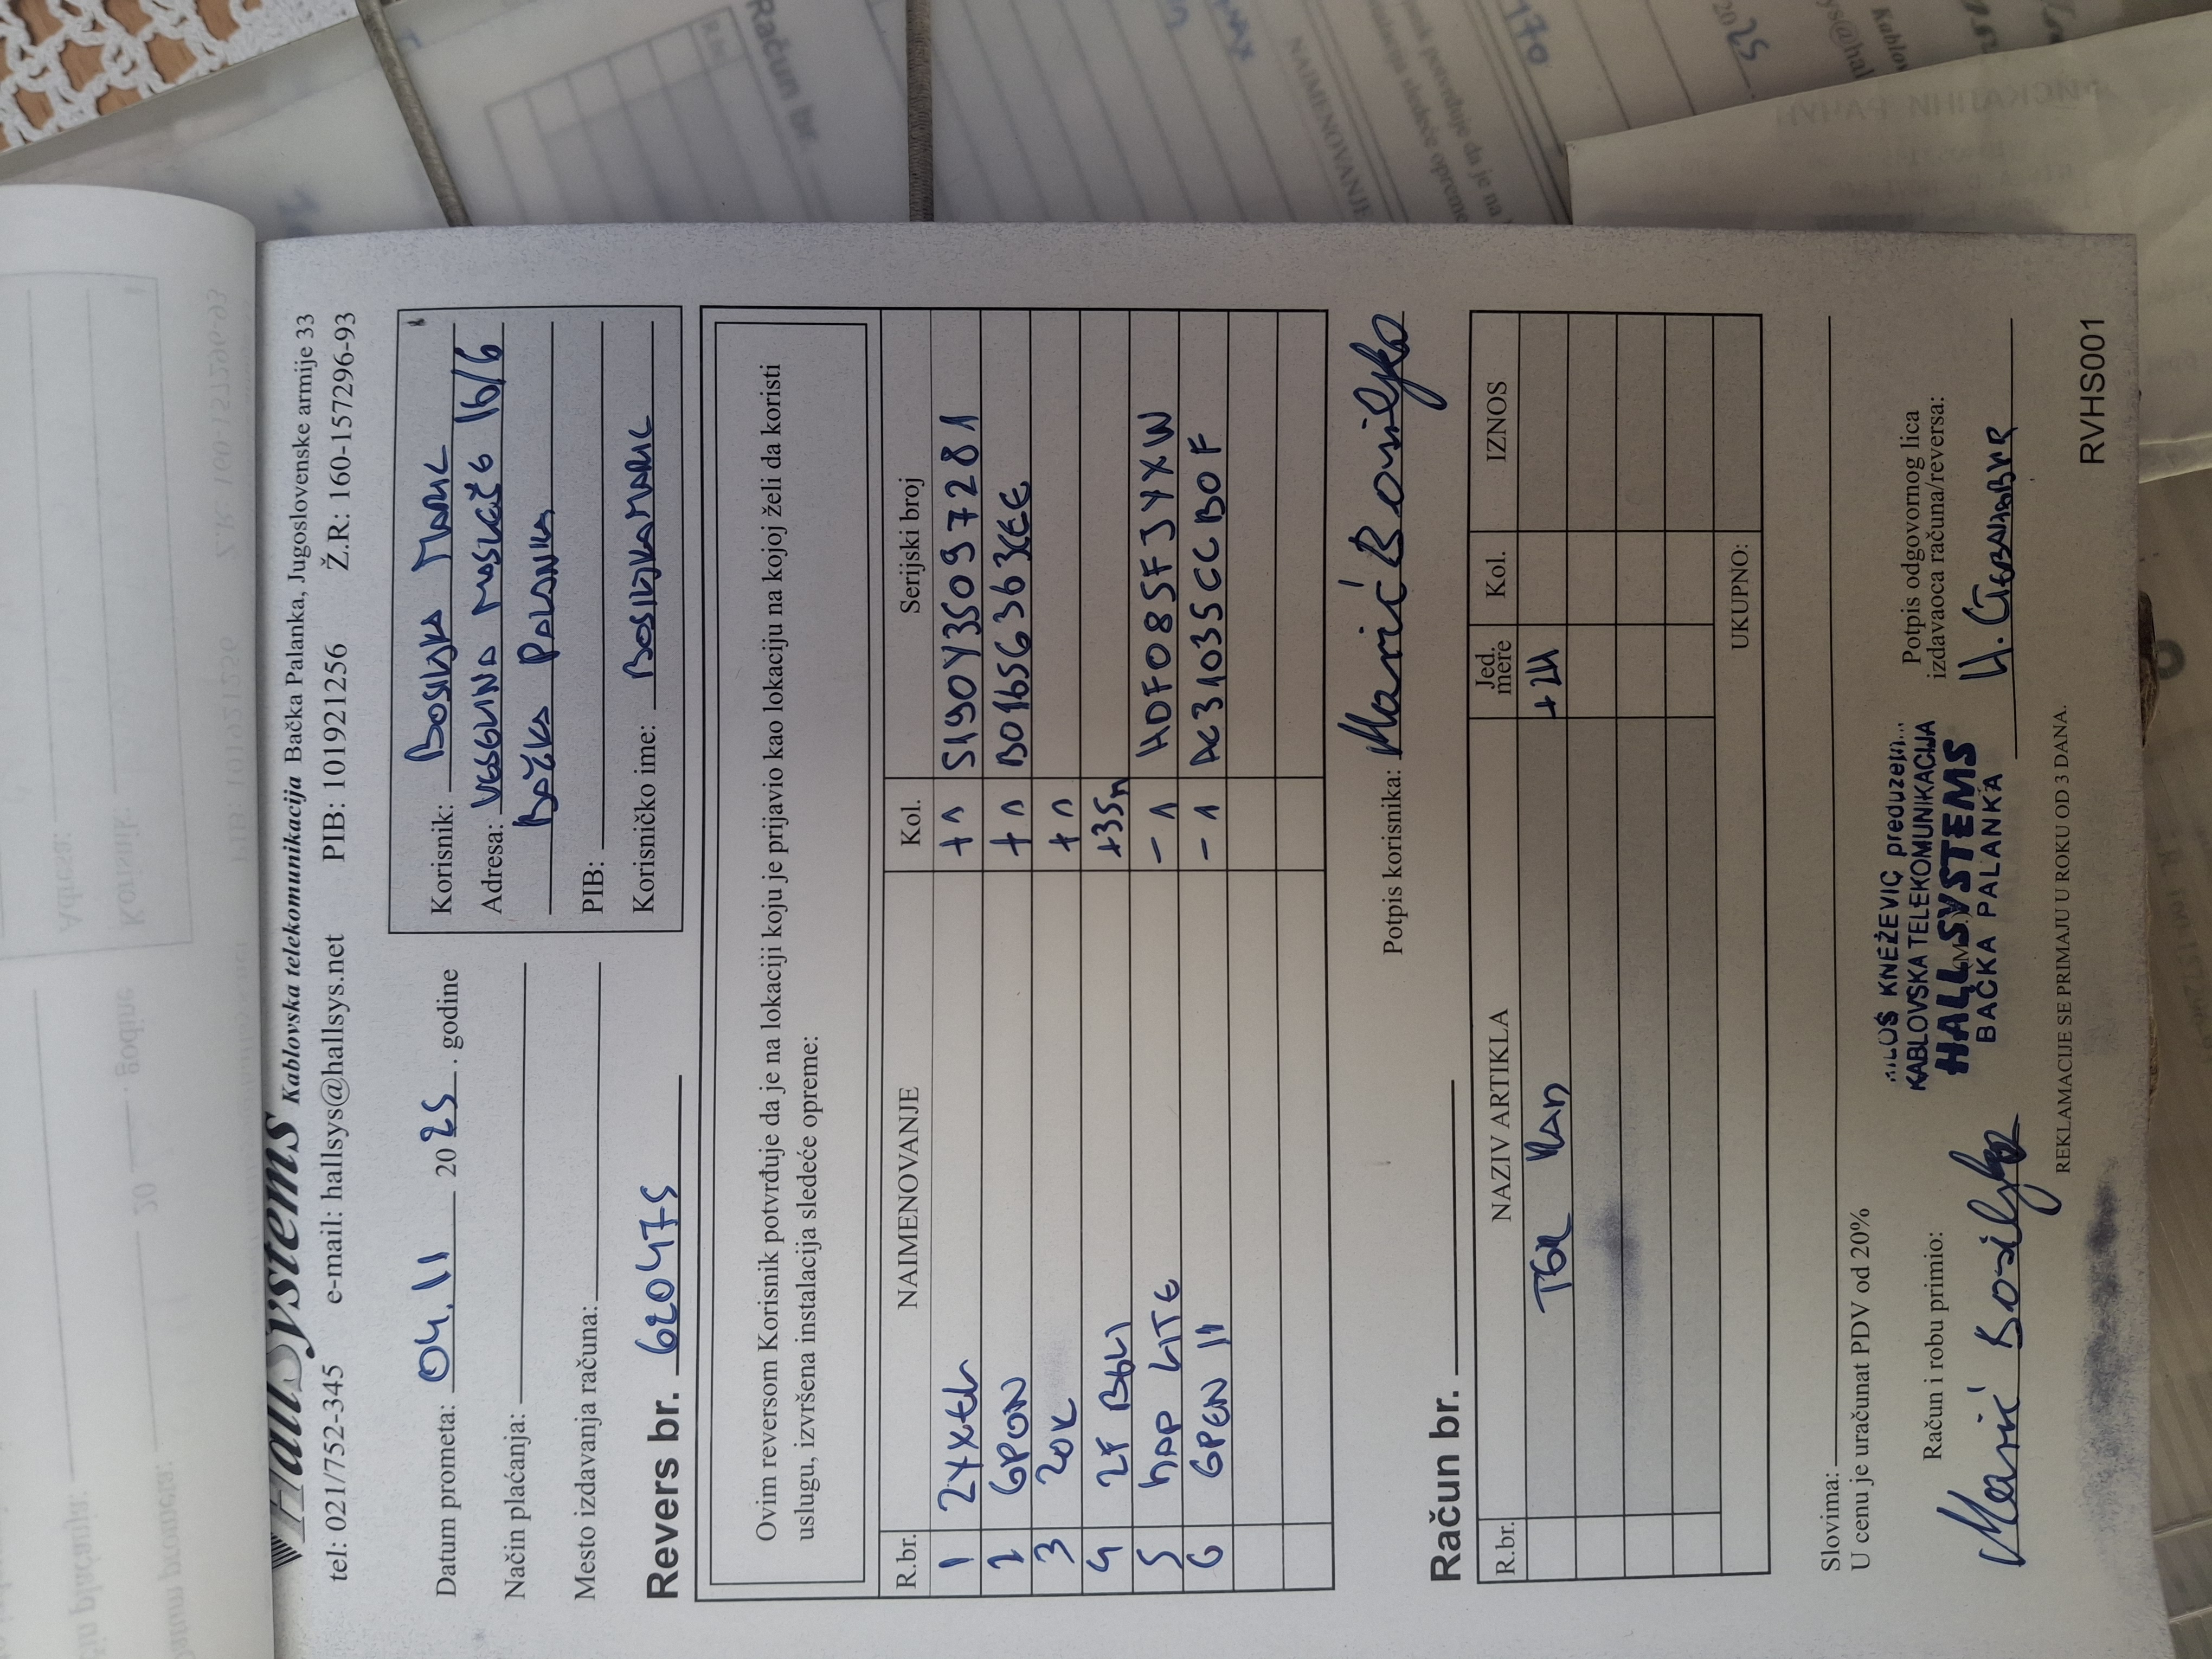 HallSystems Kablovska telekomunikacija Bačka Palanka, Jugoslovenske armije 33
tel: 021/752-345 e-mail: hallsys@hallsys.net PIB: 101921256 Ž.R: 160-157296-93
Datum prometa: 04.11 2025. godine
Način plaćanja:
Mesto izdavanja računa:
Korisnik: BOSILJKA MARIC
Adresa: VESELINA MASLEŠE 16/6
BAČKA PALANKA
PIB:
Korisničko ime: BOSILJKAMARIC
Revers br. 620475
Ovim reversom Korisnik potvrđuje da je na lokaciji koju je prijavio kao lokaciju na kojoj želi da koristi
uslugu, izvršena instalacija sledeće opreme:
R.br. NAIMENOVANJE Kol. Serijski broj
1 +1 S190Y35097281
2 GPON +1
3 ZOK +1
4 2F +35m
5 HAP LITE -1 HDF085FJYXW
6 GPEN 11 -1 AC31035CCB0F
Potpis korisnika: Marić Bosiljka
Račun br.
R.br. NAZIV ARTIKLA Jed. mere Kol. IZNOS
+2H
UKUPNO:
Slovima:
U cenu je uračunat PDV od 20%
Račun i robu primio:
Marić Bosiljka
MILOŠ KNEŽEVIĆ preduzetn...
KABLOVSKA TELEKOMUNIKACIJA
HALL SYSTEMS
BAČKA PALANKA
Potpis odgovornog lica
izdavaoca računa/reversa:
REKLAMACIJE SE PRIMAJU U ROKU OD 3 DANA.
RVHS001